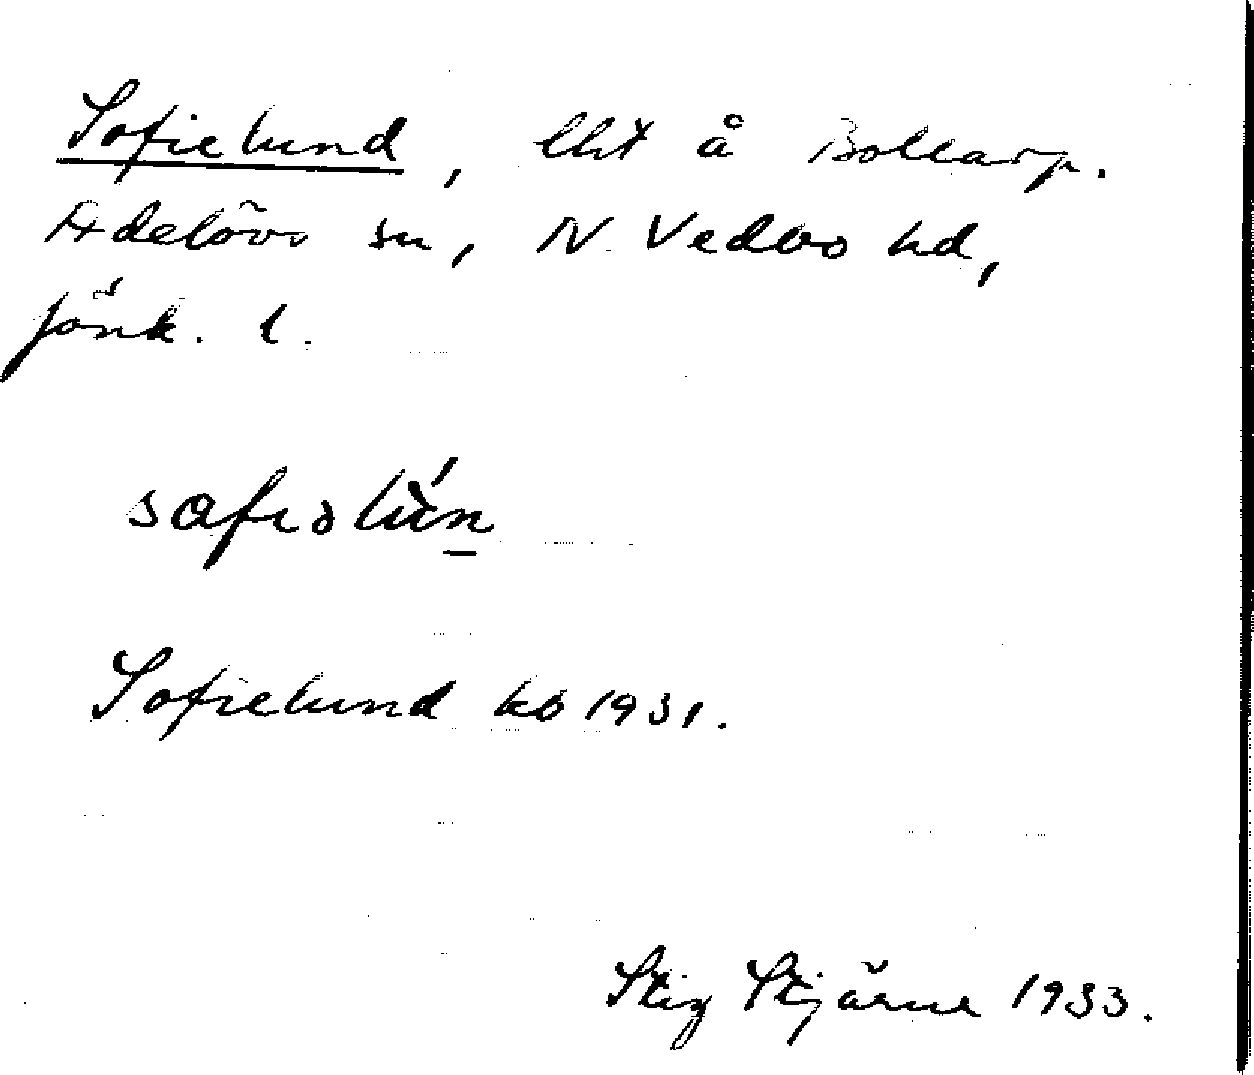 Sofielund, lht å Bollarp.
Adelövs sn, N. Vedbo hd,
Jönk. l.
safıəlún
Sofielund kb 1931.
Stig Stjärne 1933.